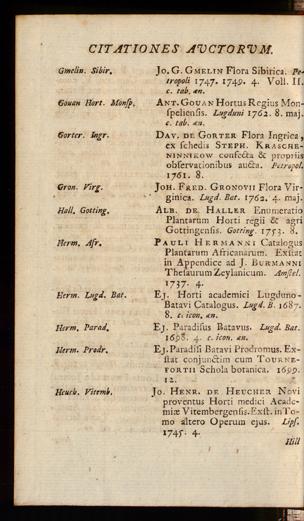 CITATIONES AVCTORVM.
Gmelin. Sibir. Jo. G. GMELIN Flora Sibirica. Pe-
tropoli 1747. 1749. 4. Voll. II.
c. tab. æn.
Gouan Hort. Monsp. ANT. GOUAN Hortus Regius Mon-
speliensis. Lugduni 1762. 8. maj.
c. tab. æn.
Gorter. Ingr. DAV. DE GORTER Flora Ingrica,
ex schedis STEPH. KRASCHE-
NINNIKOW confecta & propriis
observationibus aucta. Petropol.
1761. 8.
Gron. Virg. JOH. FRED. GRONOVII Flora Vir-
ginica. Lugd. Bat. 1762. 4. maj.
Hall. Gotting. ALB. DE HALLER Enumeratio
Plantarum Horti regii & agri
Gottingensis. Gotting. 1753. 8.
Herm. Afr. PAULI HERMANNI Catalogus
Plantarum Africanarum. Exstat
in Appendice ad J. BURMANNI
Thesaurum Zeylanicum. Amstel.
1737. 4.
Herm. Lugd. Bat. Ej. Horti academici Lugduno-
Batavi Catalogus. Lugd. B. 1687.
8. c. icon. æn.
Herm. Parad. Ej. Paradisus Batavus. Lugd. Bat.
1698. 4. c. icon. æn.
Herm. Prodr. Ej. Paradisi Batavi Prodromus. Ex-
stat conjunctim cum TOURNE-
FORTII Schola botanica. 1699.
12.
Heuch. Vitemb. JO. HENR. DE HEUCHER Novi
proventus Horti medici Acade-
miæ Vitembergensis. Exst. in To-
mo altero Operum ejus. Lips.
1745. 4.
Hill